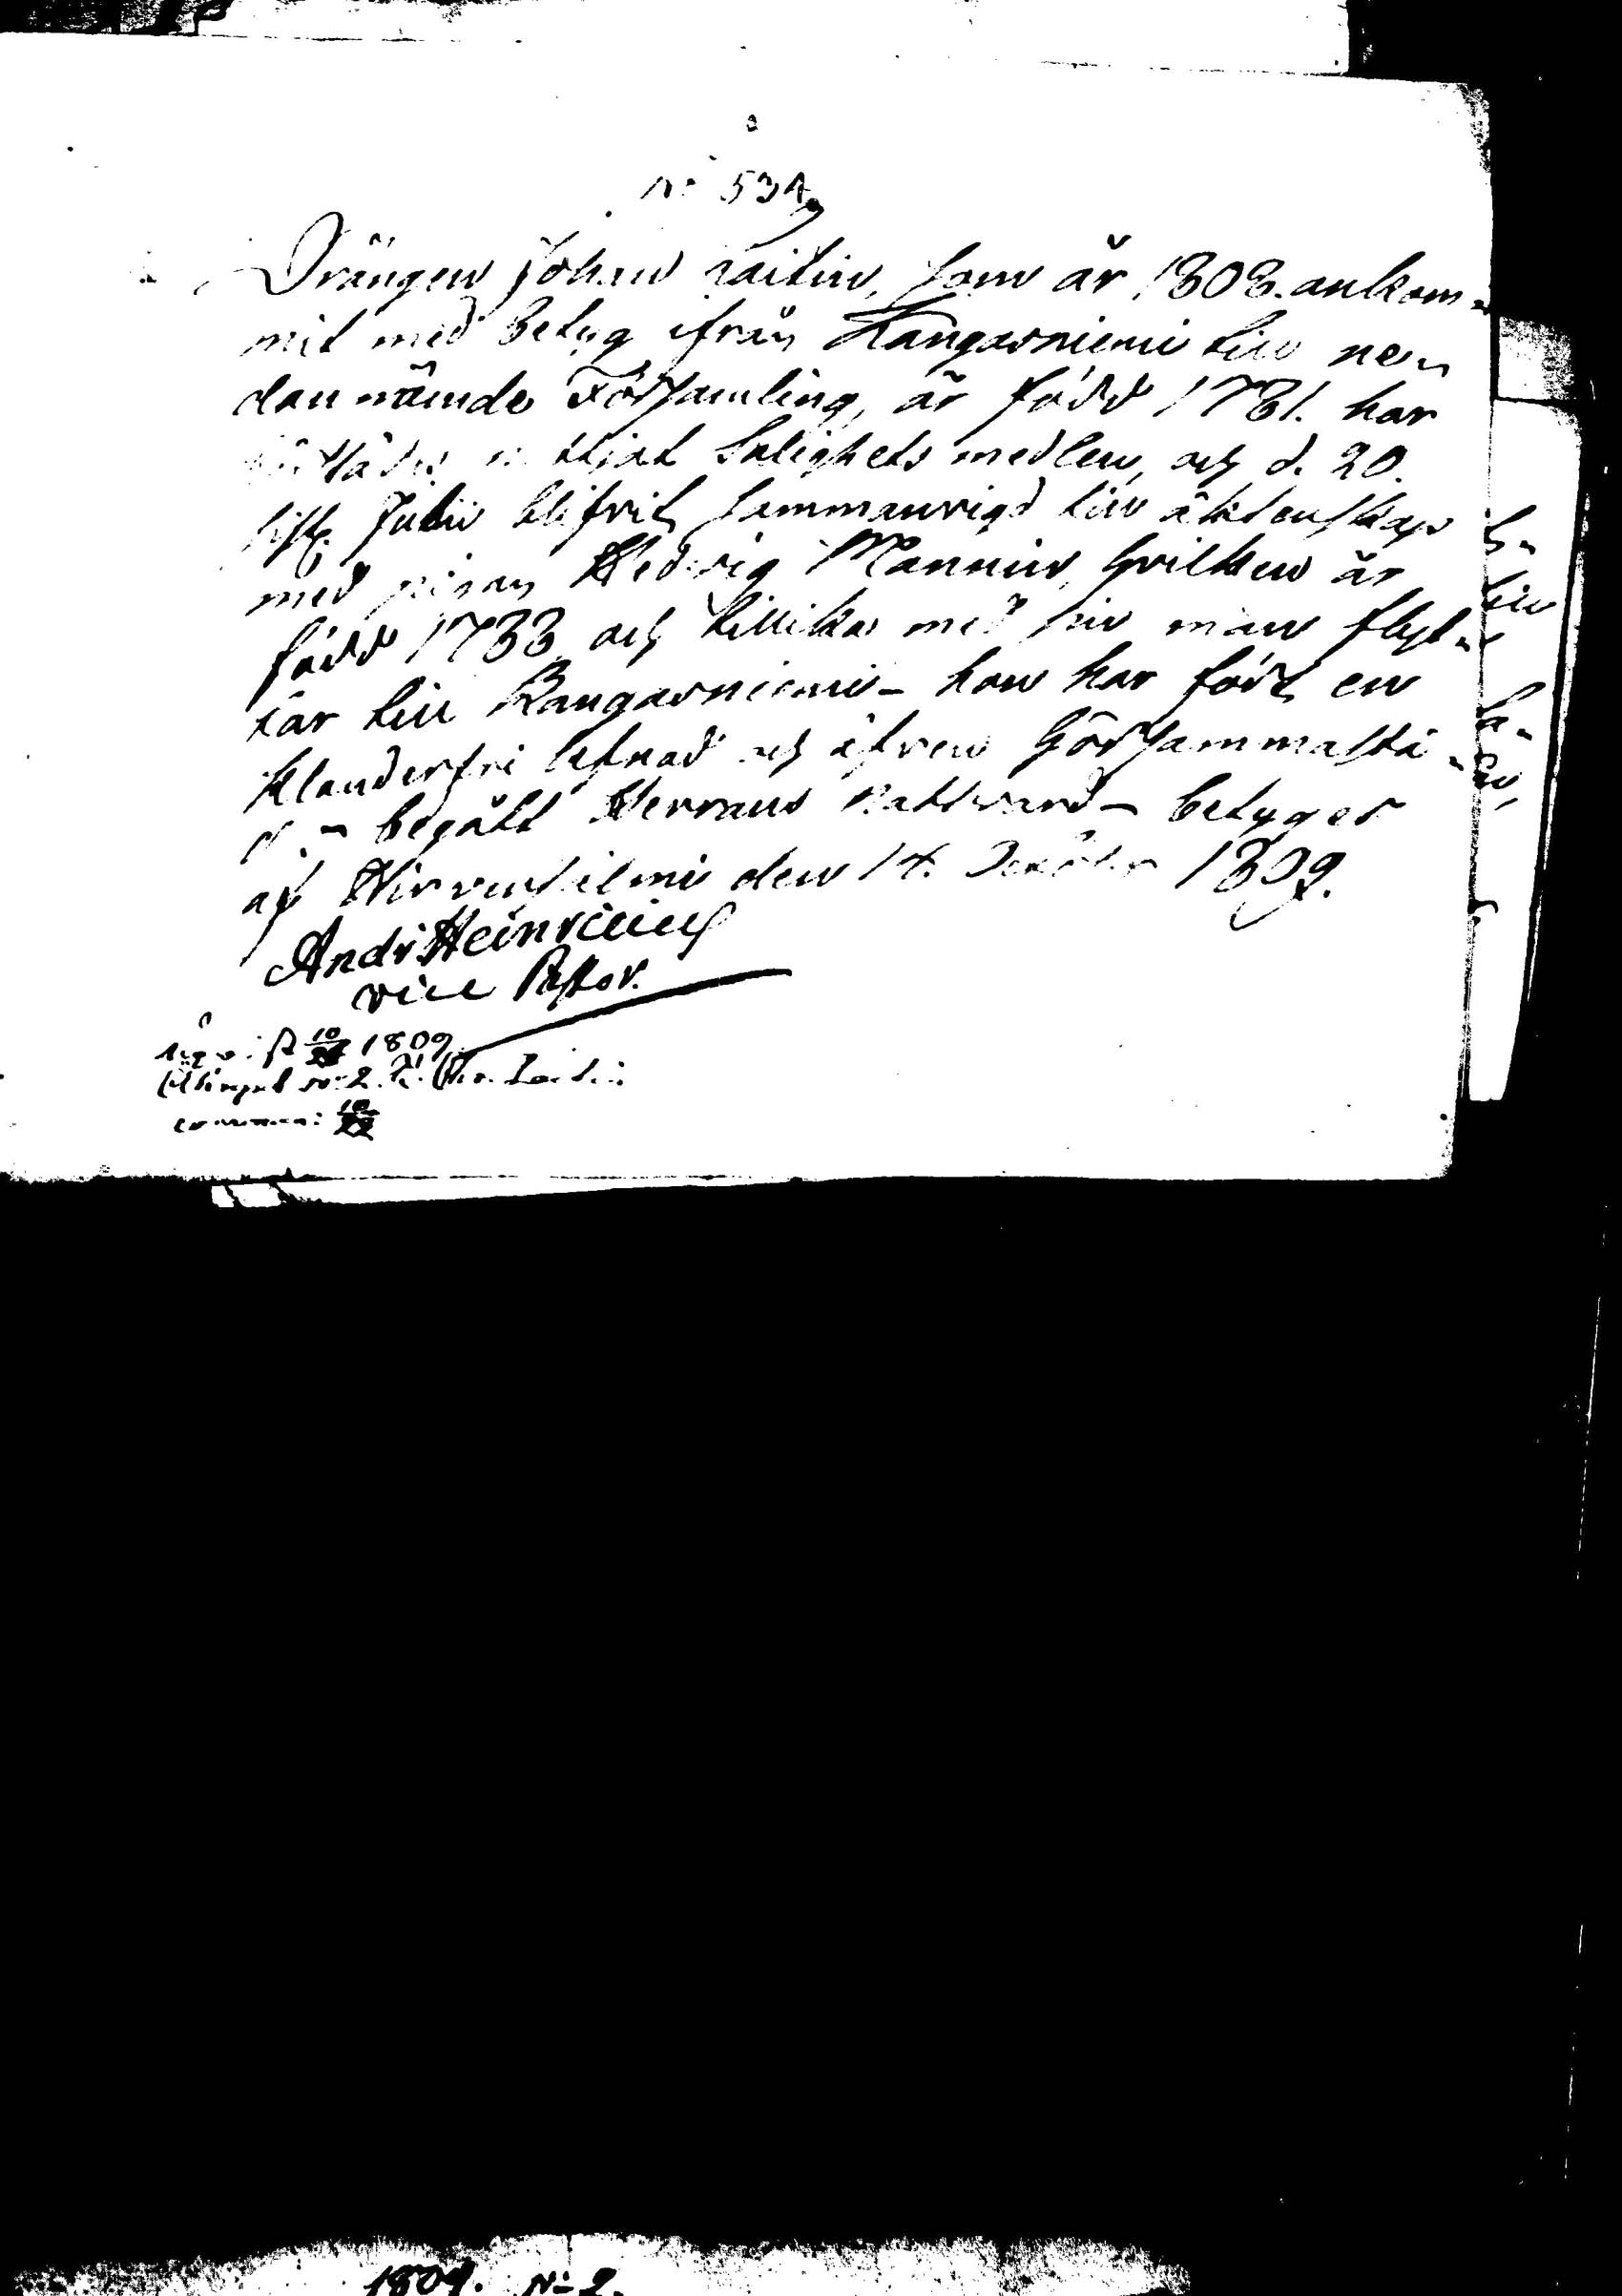 No 531
Drängen Johan Laitin, som år 1808. ankom-
mit med betyg ifrån Kangasniemi till ne-
dannämde Församling, är född 1781. har
nattjat Salighets medlen, och d. 20.
sistl. Julii blifvit sammanvigd till äktenskap
med pigan Hedvig Mannin, hvilken är
född 1788, och tillika med sin man flyt-
tar till Kangasniemi - hon har fört en
klanderfri lefnad och äfven
begått Herrans Nattvard - betygar
af Hirvensalmi den 14. 1809.
And: Heinricius
vice Pastor.
10/28 1809
No 2.
10/28
1809. No 2.